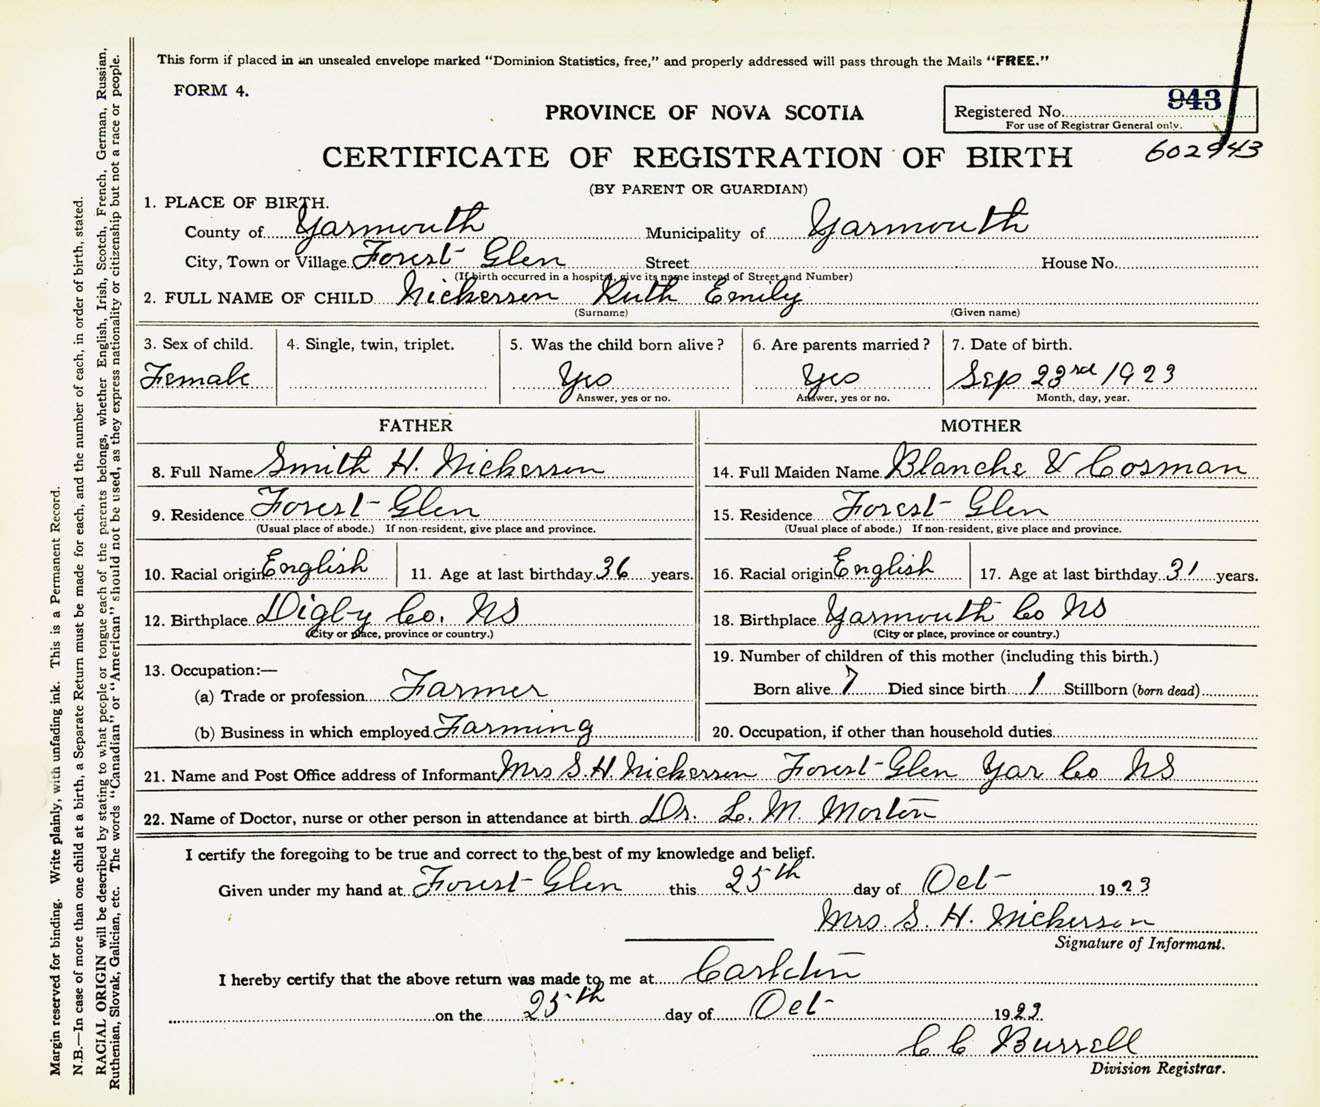 This form if placed in an unsealed envelope marked "Dominion Statistics, free," and properly addressed will pass through the Mails "FREE."
FORM 4.
PROVINCE OF NOVA SCOTIA
Registered No. 943
For use of Registrar General only.
602943
CERTIFICATE OF REGISTRATION OF BIRTH
(BY PARENT OR GUARDIAN)
1. PLACE OF BIRTH.
County of Yarmouth Municipality of Yarmouth
City, Town or Village Forest Glen Street House No.
(If birth occurred in a hospital, give its name instead of Street and Number)
2. FULL NAME OF CHILD Nickerson Ruth Emily
(Surname) (Given name)
3. Sex of child. 4. Single, twin, triplet. 5. Was the child born alive? 6. Are parents married? 7. Date of birth.
Female Yes Yes Sep 23rd 1923
Answer, yes or no. Answer, yes or no. Month, day, year.
FATHER MOTHER
8. Full Name Smith H. Nickerson 14. Full Maiden Name Blanche V Cosman
9. Residence Forest Glen 15. Residence Forest Glen
(Usual place of abode.) If non-resident, give place and province. (Usual place of abode.) If non-resident, give place and province.
10. Racial origin English 11. Age at last birthday 36 years. 16. Racial origin English 17. Age at last birthday 31 years.
12. Birthplace Digby Co. NS 18. Birthplace Yarmouth Co NS
(City or place, province or country.) (City or place, province or country.)
13. Occupation:—
(a) Trade or profession Farmer
(b) Business in which employed Farming
19. Number of children of this mother (including this birth.)
Born alive 7 Died since birth 1 Stillborn (born dead)
20. Occupation, if other than household duties
21. Name and Post Office address of Informant Mrs S.H. Nickerson Forest Glen Yar Co NS
22. Name of Doctor, nurse or other person in attendance at birth Dr. L. M. Morton
I certify the foregoing to be true and correct to the best of my knowledge and belief.
Given under my hand at Forest Glen this 25th day of Oct 1923
Mrs. S. H. Nickerson
Signature of Informant.
I hereby certify that the above return was made to me at Carleton
on the 25th day of Oct 1923
C C Burrell
Division Registrar.
Margin reserved for binding. Write plainly, with unfading ink. This is a Permanent Record.
N.B.—In case of more than one child at a birth, a Separate Return must be made for each, and the number of each, in order of birth, stated.
RACIAL ORIGIN will be described by stating to what people or tongue each of the parents belongs, whether English, Irish, Scotch, French, German, Russian,
Ruthenian, Slovak, Galician, etc. The words "Canadian" or "American" should not be used, as they express nationality or citizenship but not a race or people.